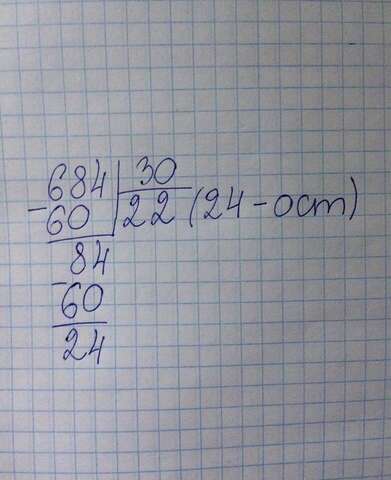 684 30
-60 22 (24-ост)
84
-60
24